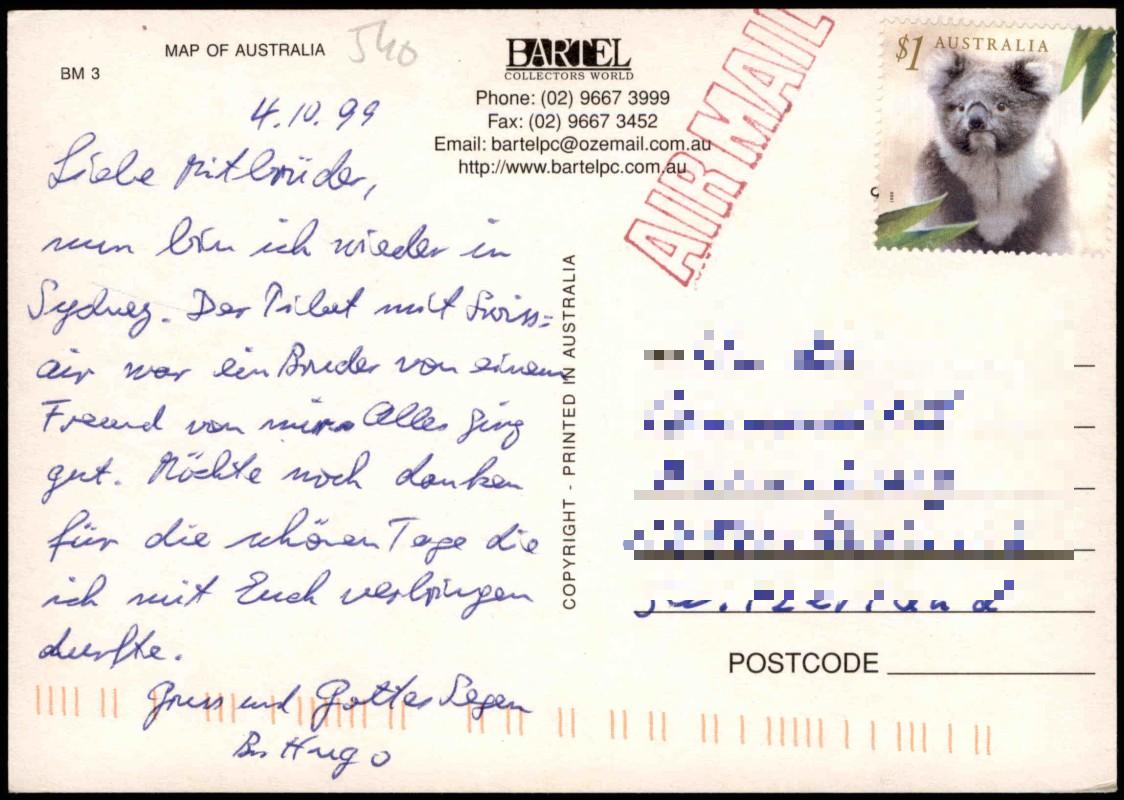 MAP OF AUSTRALIA
540
BM 3
BARTEL
COLLECTORS WORLD
Phone: (02) 9667 3999
Fax: (02) 9667 3452
Email: bartelpc@ozemail.com.au
http://www.bartelpc.com.au
AIR MAIL
$1 AUSTRALIA
4.10.99
Liebe Mitbrüder,
nun bin ich wieder in
Sydney. Der Pilot mit Swiss=
air war ein Bruder von einem
Freund von mir. Alles ging
gut. Möchte noch danken
für die schönen Tage die
ich mit Euch verbringen
durfte.
Gruss und Gottes Segen
Br. Hugo
COPYRIGHT - PRINTED IN AUSTRALIA
Switzerland
POSTCODE